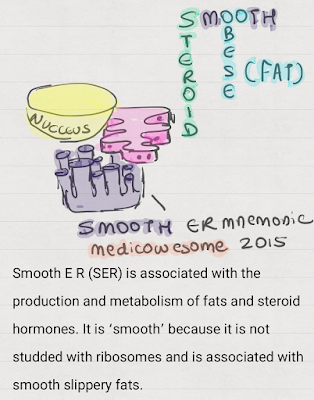 SMOOTH
STEROID
OBESE
(FAT)
NUCLEUS
SMOOTH ER MNEMONIC
medicowesome 2015
Smooth E R (SER) is associated with the
production and metabolism of fats and steroid
hormones. It is ‘smooth’ because it is not
studded with ribosomes and is associated with
smooth slippery fats.